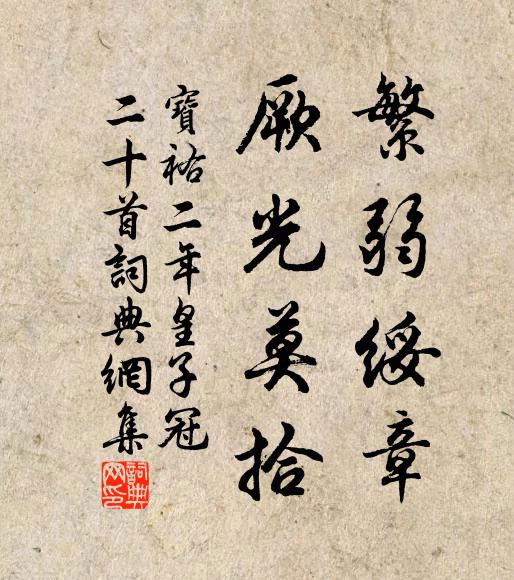 繁弱綏章
厥光莫拾
寶祐二年皇子冠
二十首詞典網集
詞典网印